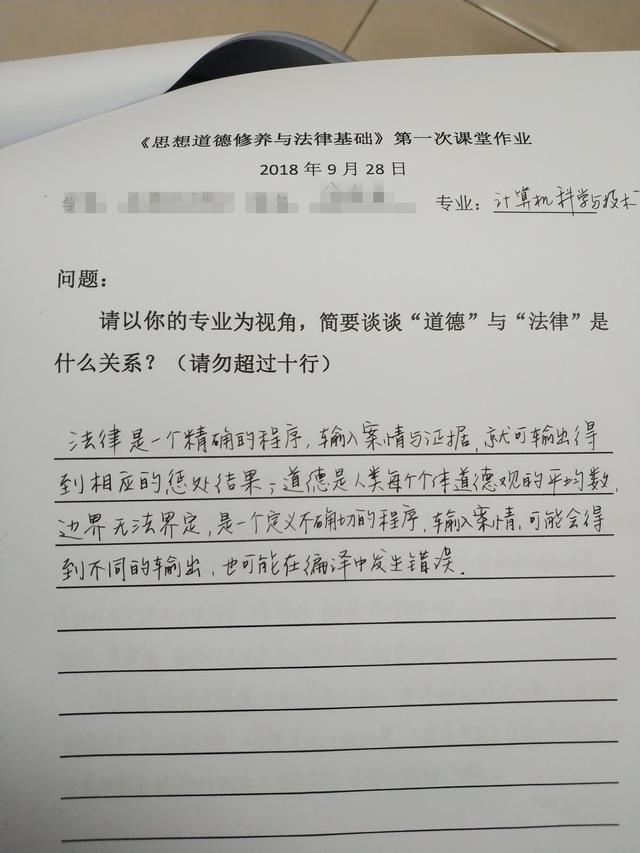 《思想道德修养与法律基础》第一次课堂作业
2018年9月28日
专业：计算机科学与技术
问题：
请以你的专业为视角，简要谈谈“道德”与“法律”是
什么关系？（请勿超过十行）
法律是一个精确的程序，输入案情与证据，就可输出得
到相应的惩处结果；道德是人类每个个体道德观的平均数，
边界无法界定，是一个定义不确切的程序，输入案情，可能会得
到不同的输出，也可能在编译中发生错误．